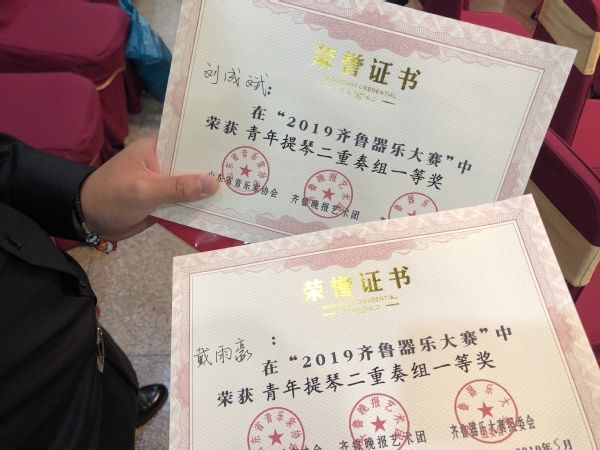 荣誉证书
HONORARY CREDENTIAL
刘成斌:
在“2019齐鲁器乐大赛”中
荣获 青年提琴二重奏组一等奖
山东省音乐家协会 齐鲁晚报艺术团
荣誉证书
戴雨豪:
在“2019齐鲁器乐大赛”中
荣获 青年提琴二重奏组一等奖
齐鲁晚报艺术团 齐鲁器乐大赛组委会
2019年5月